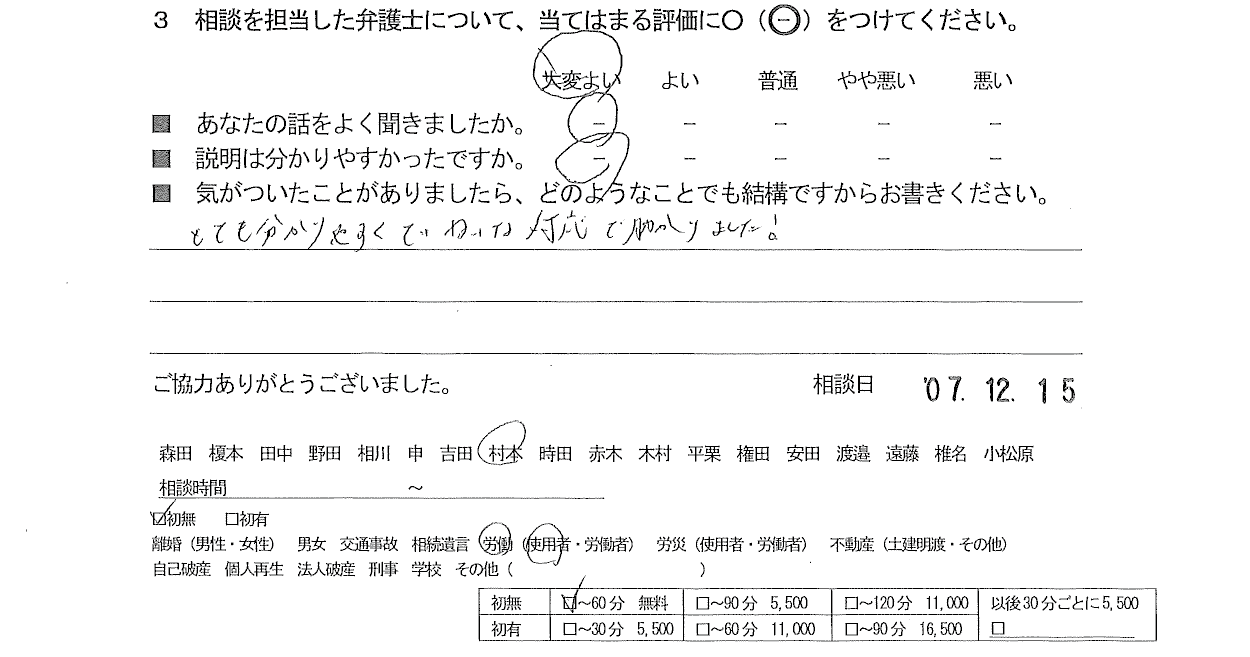 3 相談を担当した弁護士について、当てはまる評価に〇（㊀）をつけてください。
大変よい よい 普通 やや悪い 悪い
■ あなたの話をよく聞きましたか。 － － － － －
■ 説明は分かりやすかったですか。 － － － － －
■ 気がついたことがありましたら、どのようなことでも結構ですからお書きください。
とても分かりやすくていねいな対応で助かりました!
ご協力ありがとうございました。 相談日 '07. 12. 15
森田 榎本 田中 野田 相川 申 吉田 村本 時田 赤木 木村 平栗 権田 安田 渡邉 遠藤 椎名 小松原
相談時間 ～
☑初無 □初有
離婚（男性・女性） 男女 交通事故 相続遺言 労働（使用者・労働者） 労災（使用者・労働者） 不動産（土建明渡・その他）
自己破産 個人再生 法人破産 刑事 学校 その他（ ）
初無 ☑～60分 無料 □～90分 5,500 □～120分 11,000 以後30分ごとに5,500
初有 □～30分 5,500 □～60分 11,000 □～90分 16,500 □